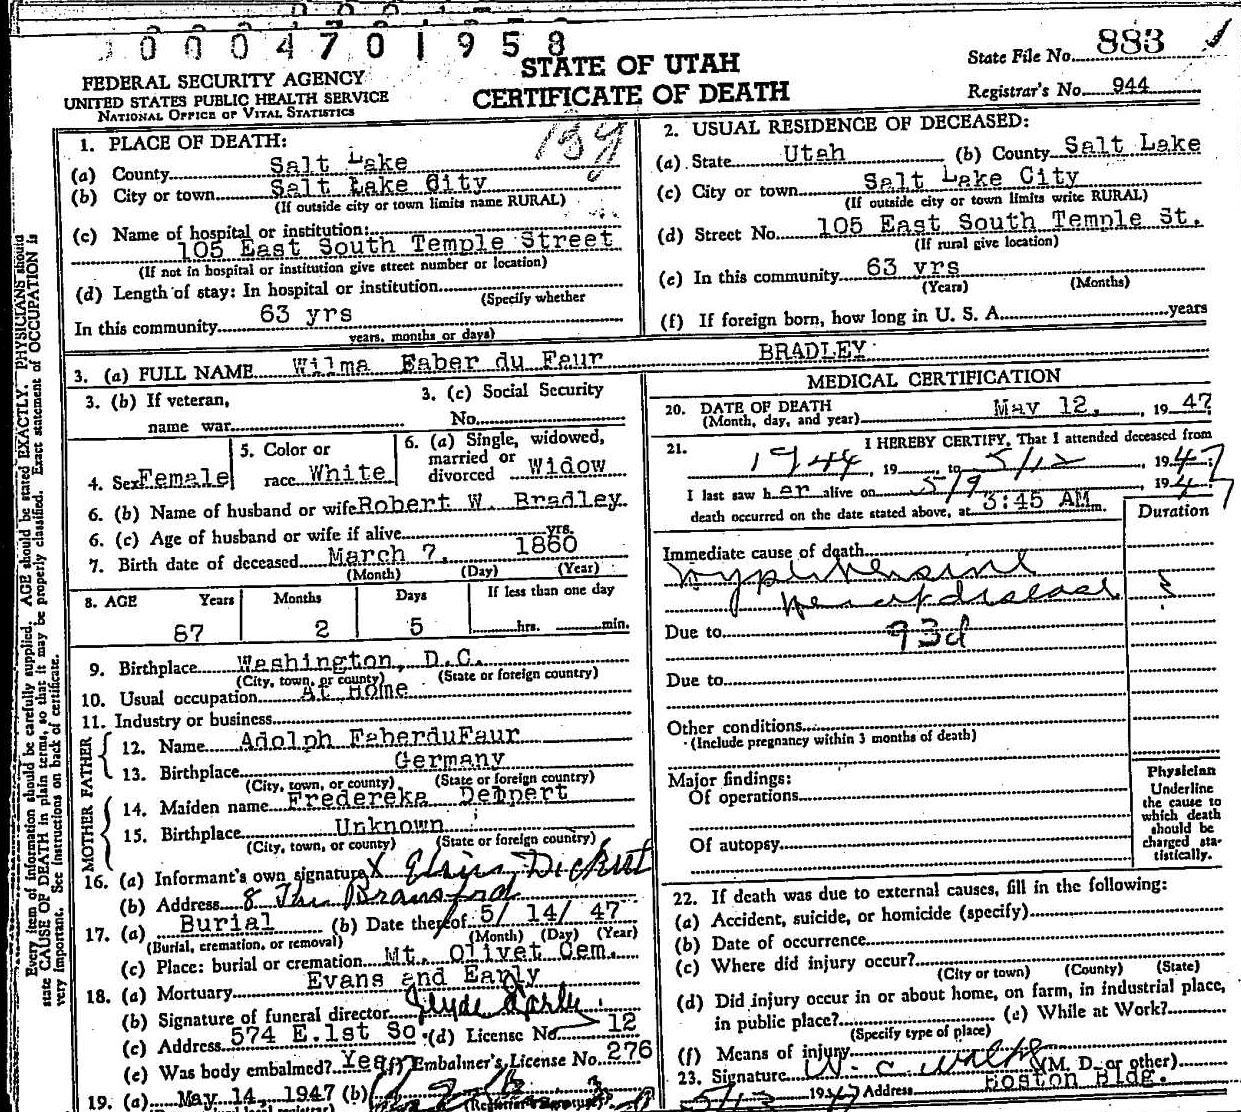 0 0 0 4 7 0 1 9 5 8
STATE OF UTAH
CERTIFICATE OF DEATH
State File No. 883
Registrar's No. 944
FEDERAL SECURITY AGENCY
UNITED STATES PUBLIC HEALTH SERVICE
NATIONAL OFFICE OF VITAL STATISTICS
Every item of information should be carefully supplied. AGE should be stated EXACTLY. PHYSICIANS should
state CAUSE OF DEATH in plain terms, so that it may be properly classified. Exact statement of OCCUPATION is
very important. See instructions on back of certificate.
1. PLACE OF DEATH:
(a) County Salt Lake
(b) City or town Salt Lake City
(If outside city or town limits name RURAL)
(c) Name of hospital or institution:
105 East South Temple Street
(If not in hospital or institution give street number or location)
(d) Length of stay: In hospital or institution
(Specify whether
In this community 63 yrs
years, months or days)
2. USUAL RESIDENCE OF DECEASED:
(a) State Utah (b) County Salt Lake
(c) City or town Salt Lake City
(If outside city or town limits write RURAL)
(d) Street No. 105 East South Temple St.
(If rural give location)
(e) In this community 63 yrs
(Years) (Months)
(f) If foreign born, how long in U. S. A. years
3. (a) FULL NAME Wilma Faber du Faur BRADLEY
3. (b) If veteran,
name war
3. (c) Social Security
No.
4. Sex Female
5. Color or
race White
6. (a) Single, widowed,
married or
divorced Widow
6. (b) Name of husband or wife Robert W. Bradley
6. (c) Age of husband or wife if alive yrs.
7. Birth date of deceased March 7, 1860
(Month) (Day) (Year)
8. AGE Years Months Days If less than one day
87 2 5 hrs. min.
9. Birthplace Washington, D.C.
(City, town, or county) (State or foreign country)
10. Usual occupation At Home
11. Industry or business
FATHER
12. Name Adolph FaberduFaur
13. Birthplace Germany
(City, town, or county) (State or foreign country)
MOTHER
14. Maiden name Fredereka Demport
15. Birthplace Unknown
(City, town, or county) (State or foreign country)
16. (a) Informant's own signature X
(b) Address 8 The Bransford
17. (a) Burial (b) Date thereof 5/ 14/ 47
(Burial, cremation, or removal) (Month) (Day) (Year)
(c) Place: burial or cremation Mt. Olivet Cem.
18. (a) Mortuary Evans and Early
(b) Signature of funeral director Clyde Early
(c) Address 574 E.1st So. (d) License No. 12
(e) Was body embalmed? Yes Embalmer's License No. 276
19. (a) May 14, 1947 (b)
MEDICAL CERTIFICATION
20. DATE OF DEATH May 12, 1947
(Month, day, and year)
21. I HEREBY CERTIFY, That I attended deceased from
1944, 19 to 5/12, 1947
I last saw her alive on 5/9, 1947
death occurred on the date stated above, at 3:45 AM m.
Duration
Immediate cause of death
hypertensive
heart disease
Due to 93d
Due to
Other conditions
(Include pregnancy within 3 months of death)
Major findings:
Of operations
Of autopsy
Physician
Underline
the cause to
which death
should be
charged sta-
tistically.
22. If death was due to external causes, fill in the following:
(a) Accident, suicide, or homicide (specify)
(b) Date of occurrence
(c) Where did injury occur?
(City or town) (County) (State)
(d) Did injury occur in or about home, on farm, in industrial place,
in public place? (e) While at Work?
(Specify type of place)
(f) Means of injury
23. Signature W. C. (M. D. or other)
5/13 1947 Address Boston Bldg.